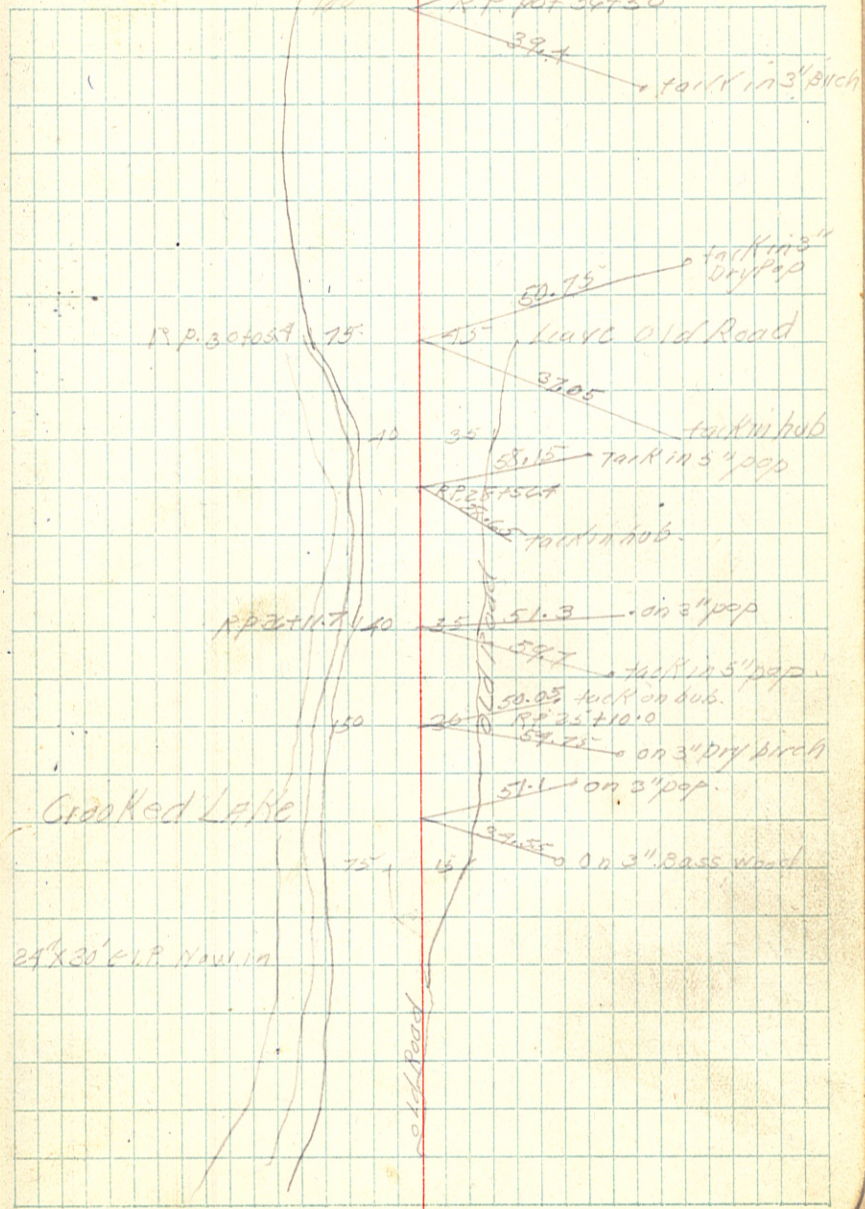 39.4
tack in 3" Birch
tack in 3"
Dry Pop
50.75
R.P. 30+05.4 75 45 Leave Old Road
37.05
tack in hub
40 35
58.15 Tack in 5" pop
R.P. 28+56.4
tack in hub.
R.P. 26+11.7 140 35 51.3 on 3" pop
59.7
tack in 5" pop.
Old Road
50.05 tack on hub.
150 R.P. 25+10.0
54.75 on 3" Dry birch
51.1 on 3" pop.
Crooked Lake
34.55
75 15 On 3" Bass wood
24" X 30' C.I.P. Now in
Old Road